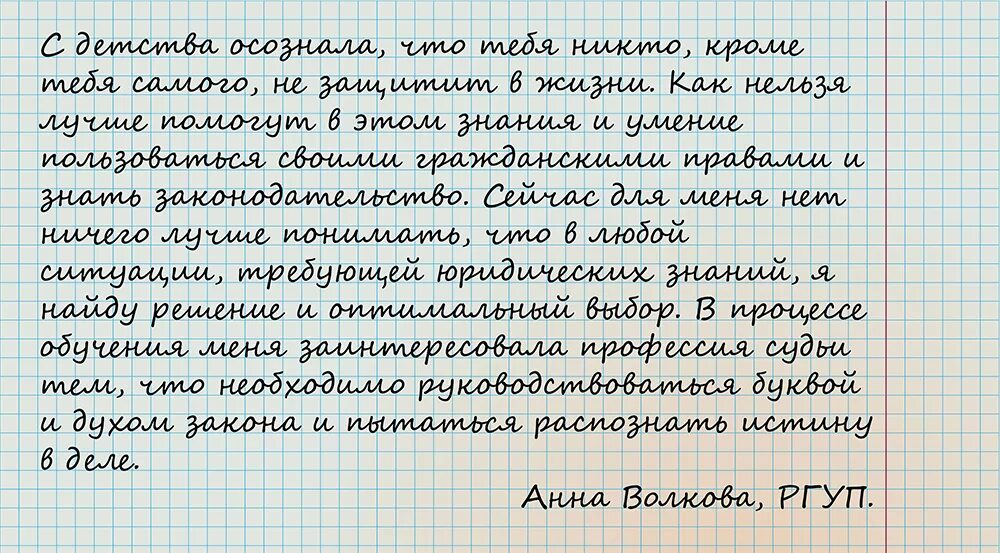 С детства осознала, что тебя никто, кроме
тебя самого, не защитит в жизни. Как нельзя
лучше помогут в этом знания и умение
пользоваться своими гражданскими правами и
знать законодательство. Сейчас для меня нет
ничего лучше понимать, что в любой
ситуации, требующей юридических знаний, я
найду решение и оптимальный выбор. В процессе
обучения меня заинтересовала профессия судьи
тем, что необходимо руководствоваться буквой
и духом закона и пытаться распознать истину
в деле.
Анна Волкова, РГУП.